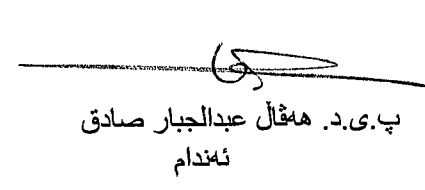 پ.ی.د. هەڤاڵ عبدالجبار صادق
ئەندام